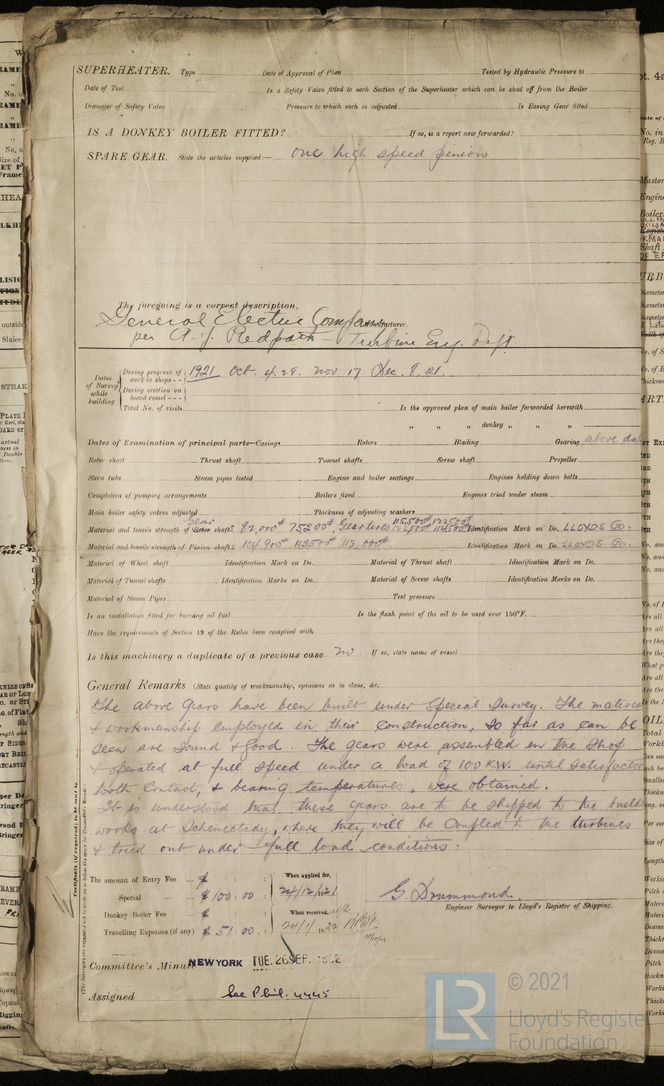 SUPERHEATER. Type Date of Approval of Plan Tested by Hydraulic Pressure to
Date of Test Is a Safety Valve fitted to each Section of the Superheater which can be shut off from the Boiler
Diameter of Safety Valve Pressure to which each is adjusted Is Easing Gear fitted
IS A DONKEY BOILER FITTED? If so, is a report now forwarded?
SPARE GEAR. State the articles supplied:— one high speed pinion
The foregoing is a correct description,
General Electric Company Manufacturer.
per A. J. Redpath – Turbine Eng. Dept
Dates of Survey while building
During progress of work in shops - - 1921 Oct. 4. 29. Nov 17 Dec. 8. 21.
During erection on board vessel - - -
Total No. of visits Is the approved plan of main boiler forwarded herewith
" " " donkey " " "
Dates of Examination of principal parts—Casings Rotors Blading Gearing above da
Rotor shaft Thrust shaft Tunnel shafts Screw shaft Propeller
Stern tube Steam pipes tested Engine and boiler seatings Engines holding down bolts
Completion of pumping arrangements Boilers fixed Engines tried under steam
Main boiler safety valves adjusted Thickness of adjusting washers
Material and tensile strength of Gear shafts Identification Mark on Do. LLOYDS
Material and tensile strength of Pinion shafts 104900# 113500# 113,000# Identification Mark on Do. LLOYDS
Material of Wheel shaft Identification Mark on Do. Material of Thrust shaft Identification Mark on Do.
Material of Tunnel shafts Identification Marks on Do. Material of Screw shafts Identification Marks on Do.
Material of Steam Pipes Test pressure
Is an installation fitted for burning oil fuel Is the flash point of the oil to be used over 150°F.
Have the requirements of Section 49 of the Rules been complied with
Is this machinery a duplicate of a previous case no. If so, state name of vessel
General Remarks (State quality of workmanship, opinions as to class, &c.
The above gears have been built under Special Survey. The material
& workmanship employed in their construction, so far as can be
seen are sound & good. The gears were assembled in the shop
& operated at full speed under a load of 100 KW. until satisfactor
tooth contact, & bearing temperatures, were obtained.
It is understood that these gears are to be shipped to the build
works at Schenectady, where they will be coupled to the turbines
& tried out under full load conditions.
The amount of Entry Fee ... $ : : When applied for,
Special ... $ 100 : 00 : 24/12/1921
Donkey Boiler Fee ... $ : : When received,
Travelling Expenses (if any) $ 51 : 00 : 24/1/1922
G. Drummond.
Engineer Surveyor to Lloyd's Register of Shipping.
Committee's Minute NEW YORK TUE. 26 SEP. 1922
Assigned See Phil. 4445
© 2021
LR
Lloyd's Register
Foundation